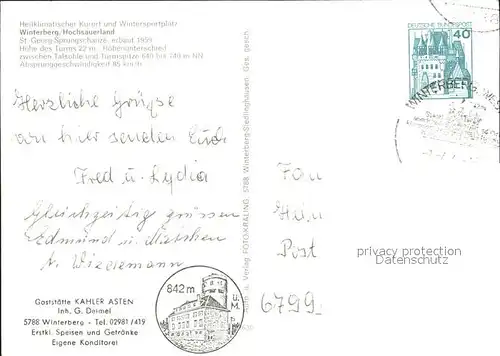 Heilklimatischer Kurort und Wintersportplatz
Winterberg, Hochsauerland
St. Georg-Sprungschanze, erbaut 1959
Höhe des Turms 22 m Höhenunterschied
zwischen Talsohle und Turmspitze 640 bis 740 m NN
Absprunggeschwindigkeit 85 km/h
Herzliche Grüße
von hier senden Euch
Fred u. Lydia
Gleichzeitig grüssen
Edmund u.
A. Wiedemann
Gaststätte KAHLER ASTEN
Inh. G. Deimel
5788 Winterberg - Tel. 02981/419
Erstkl. Speisen und Getränke
Eigene Konditorei
842 m
ü. M.
u. Verlag FOTO-KRALING, 5788 Winterberg-Siedlinghausen Ges. gesch.
DEUTSCHE BUNDESPOST
40
WINTERBERG
Post
6799
privacy protection
Datenschutz